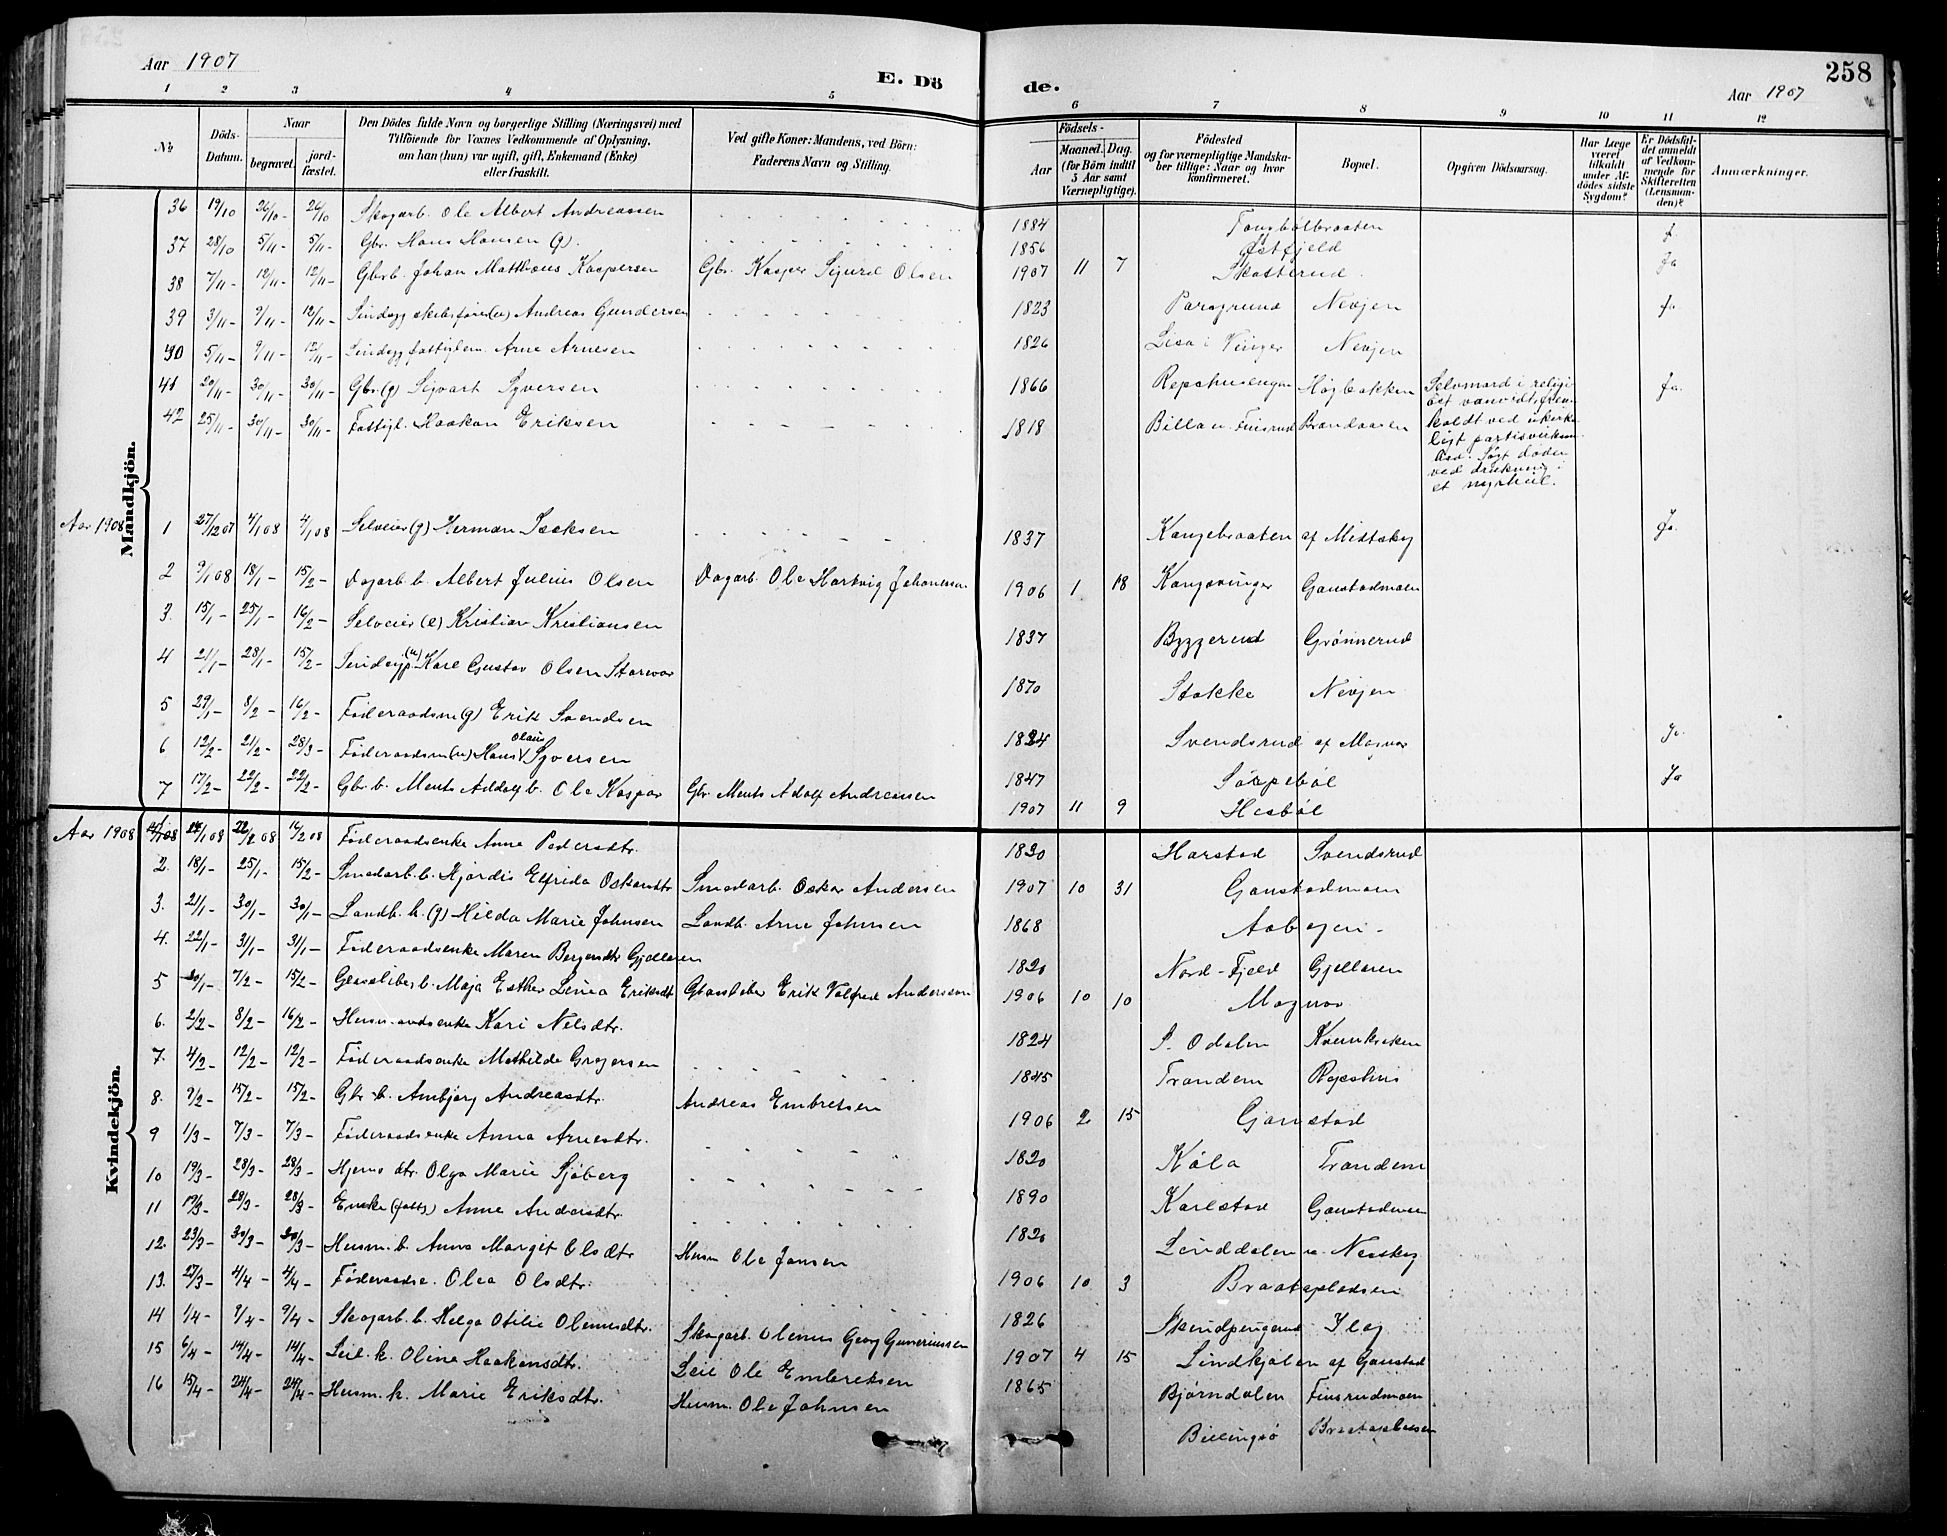 Aar 1907
E. Dö
de.
258
Aar 1907
1 2 3 4 5 6 7 8 9 10 11 12
No
Döds-Datum.
Naar
begravet.
jordfæstet.
Den Dödes fulde Navn og borgerlige Stilling (Næringsvei) med Tilföiende for Voxnes Vedkommende af Oplysning, om han (hun) var ugift, gift, Enkemand (Enke) eller fraskilt.
Ved gifte Koner: Mandens, ved Börn: Faderens Navn og Stilling.
Födsels-
Aar
Maaned. Dag.
(for Börn indtil 5 Aar samt Værnepligtige).
Födested og for værnepligtige Mandskaber tillige: Naar og hvor konfirmeret.
Bopæl.
Opgiven Dödsaarsag.
Har Læge været tilkaldt under Afdödes sidste Sygdom?
Er Dödsfaldet anmeldt af Vedkommende for Skifteretten (Lensmanden)?
Anmærkninger.
Mandkjön.
36 19/10 26/10- 26/10 Skogarb. Ole Albert Andreassen 1884 Tonsbølbraaten J.
37 28/10 5/11- 5/11- Gbr. Hans Hansen (g). 1856 Østfjeld
38 7/11- 12/11- 12/11- Gbrb. Johan Matthæus Kaspersen Gbr. Kasper Sigurd Olsen 1907 11 7 Skotterud. Ja
39 3/11- 9/11- 12/11- Sindsyg skibsfører (u) Andreas Gundersen 1823 Porsgrund Nevjen Ja.
40 5/11- 9/11- 12/11- Sindsyg fattiglem. Arne Arnesen 1826 Lisa i Vinger Nevjen
41 20/11- 30/11- 30/11- Gbr. (g) Sigvart Syversen 1866 Repshusengen Högbakken Selvmord i religiøst vanvidt, fremkaldt ved ukirkeligt partivirksomhed. Søgt døden ved drukning i et myrhul. Ja.
42 25/11- 30/11- 30/11- Fattigl. Haakon Eriksen 1818 Billa u. Finsrud Brandaasen
Aar 1908
1 27/12 07 4/1 08 4/1 08 Selveier (g) Herman Isaksen 1837 Kangebraaten af Midtskog Ja.
2 9/1 08 18/1- 15/2- Dagarb. b. Albert Julius Olsen Dagarb. Ole Hartvig Johansen 1906 1 18 Kongsvinger Gaustadmoen
3. 15/1- 25/1- 16/2- Selveier (e) Kristian Kristiansen 1837 Byggerud Grønnerud
4 21/1- 28/1- 15/2- Sindssyg (u) Karl Gustav Olsen Storevor 1870 Stokke Nevjen
5 29/1- 8/2- 16/2- Føderaadsm (g) Erik Svendsen 1834 Svendsrud af Magnor Ja.
6 12/2- 21/2- 28/3- Føderaadsm (u) Hans Olaus Syversen 1847 Söppeböl Ja
7 17/2- 22/2- 22/2- Gbr. b. Ments Addolf b. Ole Kaspar Gbr. Ments Adolf Andreassen 1907 11 9 Hesböl
Kvindekjön.
Aar 1908
14/1 08 22/2 08 16/2 08 Føderaadsenke Anne Pedersdtr. 1830 Harstad Svendsrud
2. 18/1- 25/1- 15/2- Smedarb. b. Hjördis Elfrida Oskarsdtr Smedarb. Oskar Andersen 1907 10 31 Gaustadmoen
3. 21/1- 30/1- 30/1- Landh. k. (g) Hilda Marie Johnsen Landh. Arne Johnsen 1868 Aabogen
4. 22/1- 31/1- 31/1- Føderaadsenke Maren Bergersdtr Gjellaren 1820 Nord-Fjeld Gjellaren
5 30/1- 7/2- 15/2- Glassliber b. Maja Esther Linea Eriksdtr Glassliber Erik Valfred Andersen 1906 10 10 Magnor
6. 2/2- 8/2- 16/2- Husmandsenke Kari Nelsdtr. 1824 S. Odalen Kvernbakken
7. 4/2- 12/2- 12/2- Føderaadsenke Mathilde Gregersen 1845 Trandem Repshus
8. 9/2- 15/2- 15/2- Gbr. b. Ambjörg Andreasdtr. Andreas Embretsen 1906 2 15 Gaustad
9 1/3- 7/3- 7/3- Føderaadsenke Anna Arnesdtr. 1820 Köla Trandem
10 19/3- 28/3- 28/3- Hjems dtr. Olga Marie Sjöberg 1890 Karlstad Gaustadmoen
11 19/3- 28/3- 28/3- Enke (fatt.) Anne Andersdtr. 1820 Linddalen u. Nesskog
12. 23/3- 30/3- 30/3- Husm. b. Anna Margit Olsdtr Husm Ole Jansen 1906 10 3 Braatepladsen
13. 27/3- 4/4- 4/4- Føderaadse. Olea Olsdtr. 1826 Skindpungerud Flag
14 1/4- 9/4- 9/4- Skogarb. b. Helga Otilie Olausdtr. Skogarb. Olenus Georg Gunerinssen 1907 4 15 Lindkjölen af Gaustad
15 6/4- 14/4- 14/4- Leil. k. Olina Haakonsdtr. Leil Ole Embretsen 1865 Bjørndalen Finsrudmoen
16 15/4- 24/4- 24/4- Husm. k. Marie Eriksdtr. Husm. Ole Johnsen Billingsö Braatepladsen